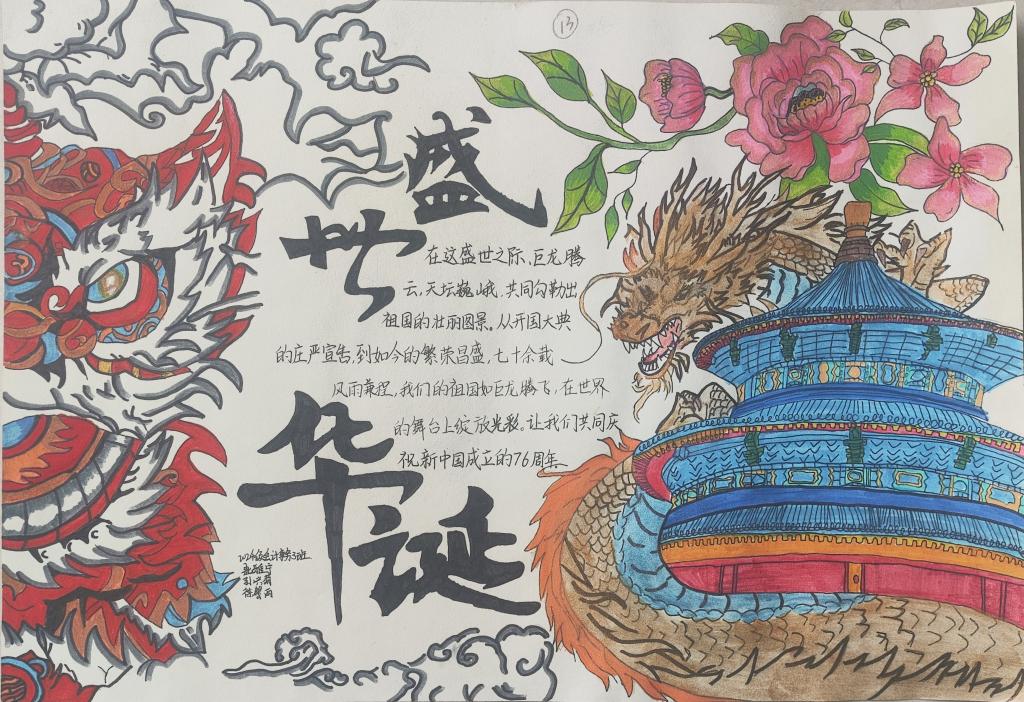 13
盛世
华诞
在这盛世之际,巨龙腾
云,天坛巍峨,共同勾勒出
祖国的壮丽图景。从开国大典
的庄严宣告,到如今的繁荣昌盛,七十余载
风雨兼程,我们的祖国如巨龙腾飞,在世界
的舞台上绽放光彩。让我们共同庆
祝新中国成立的76周年